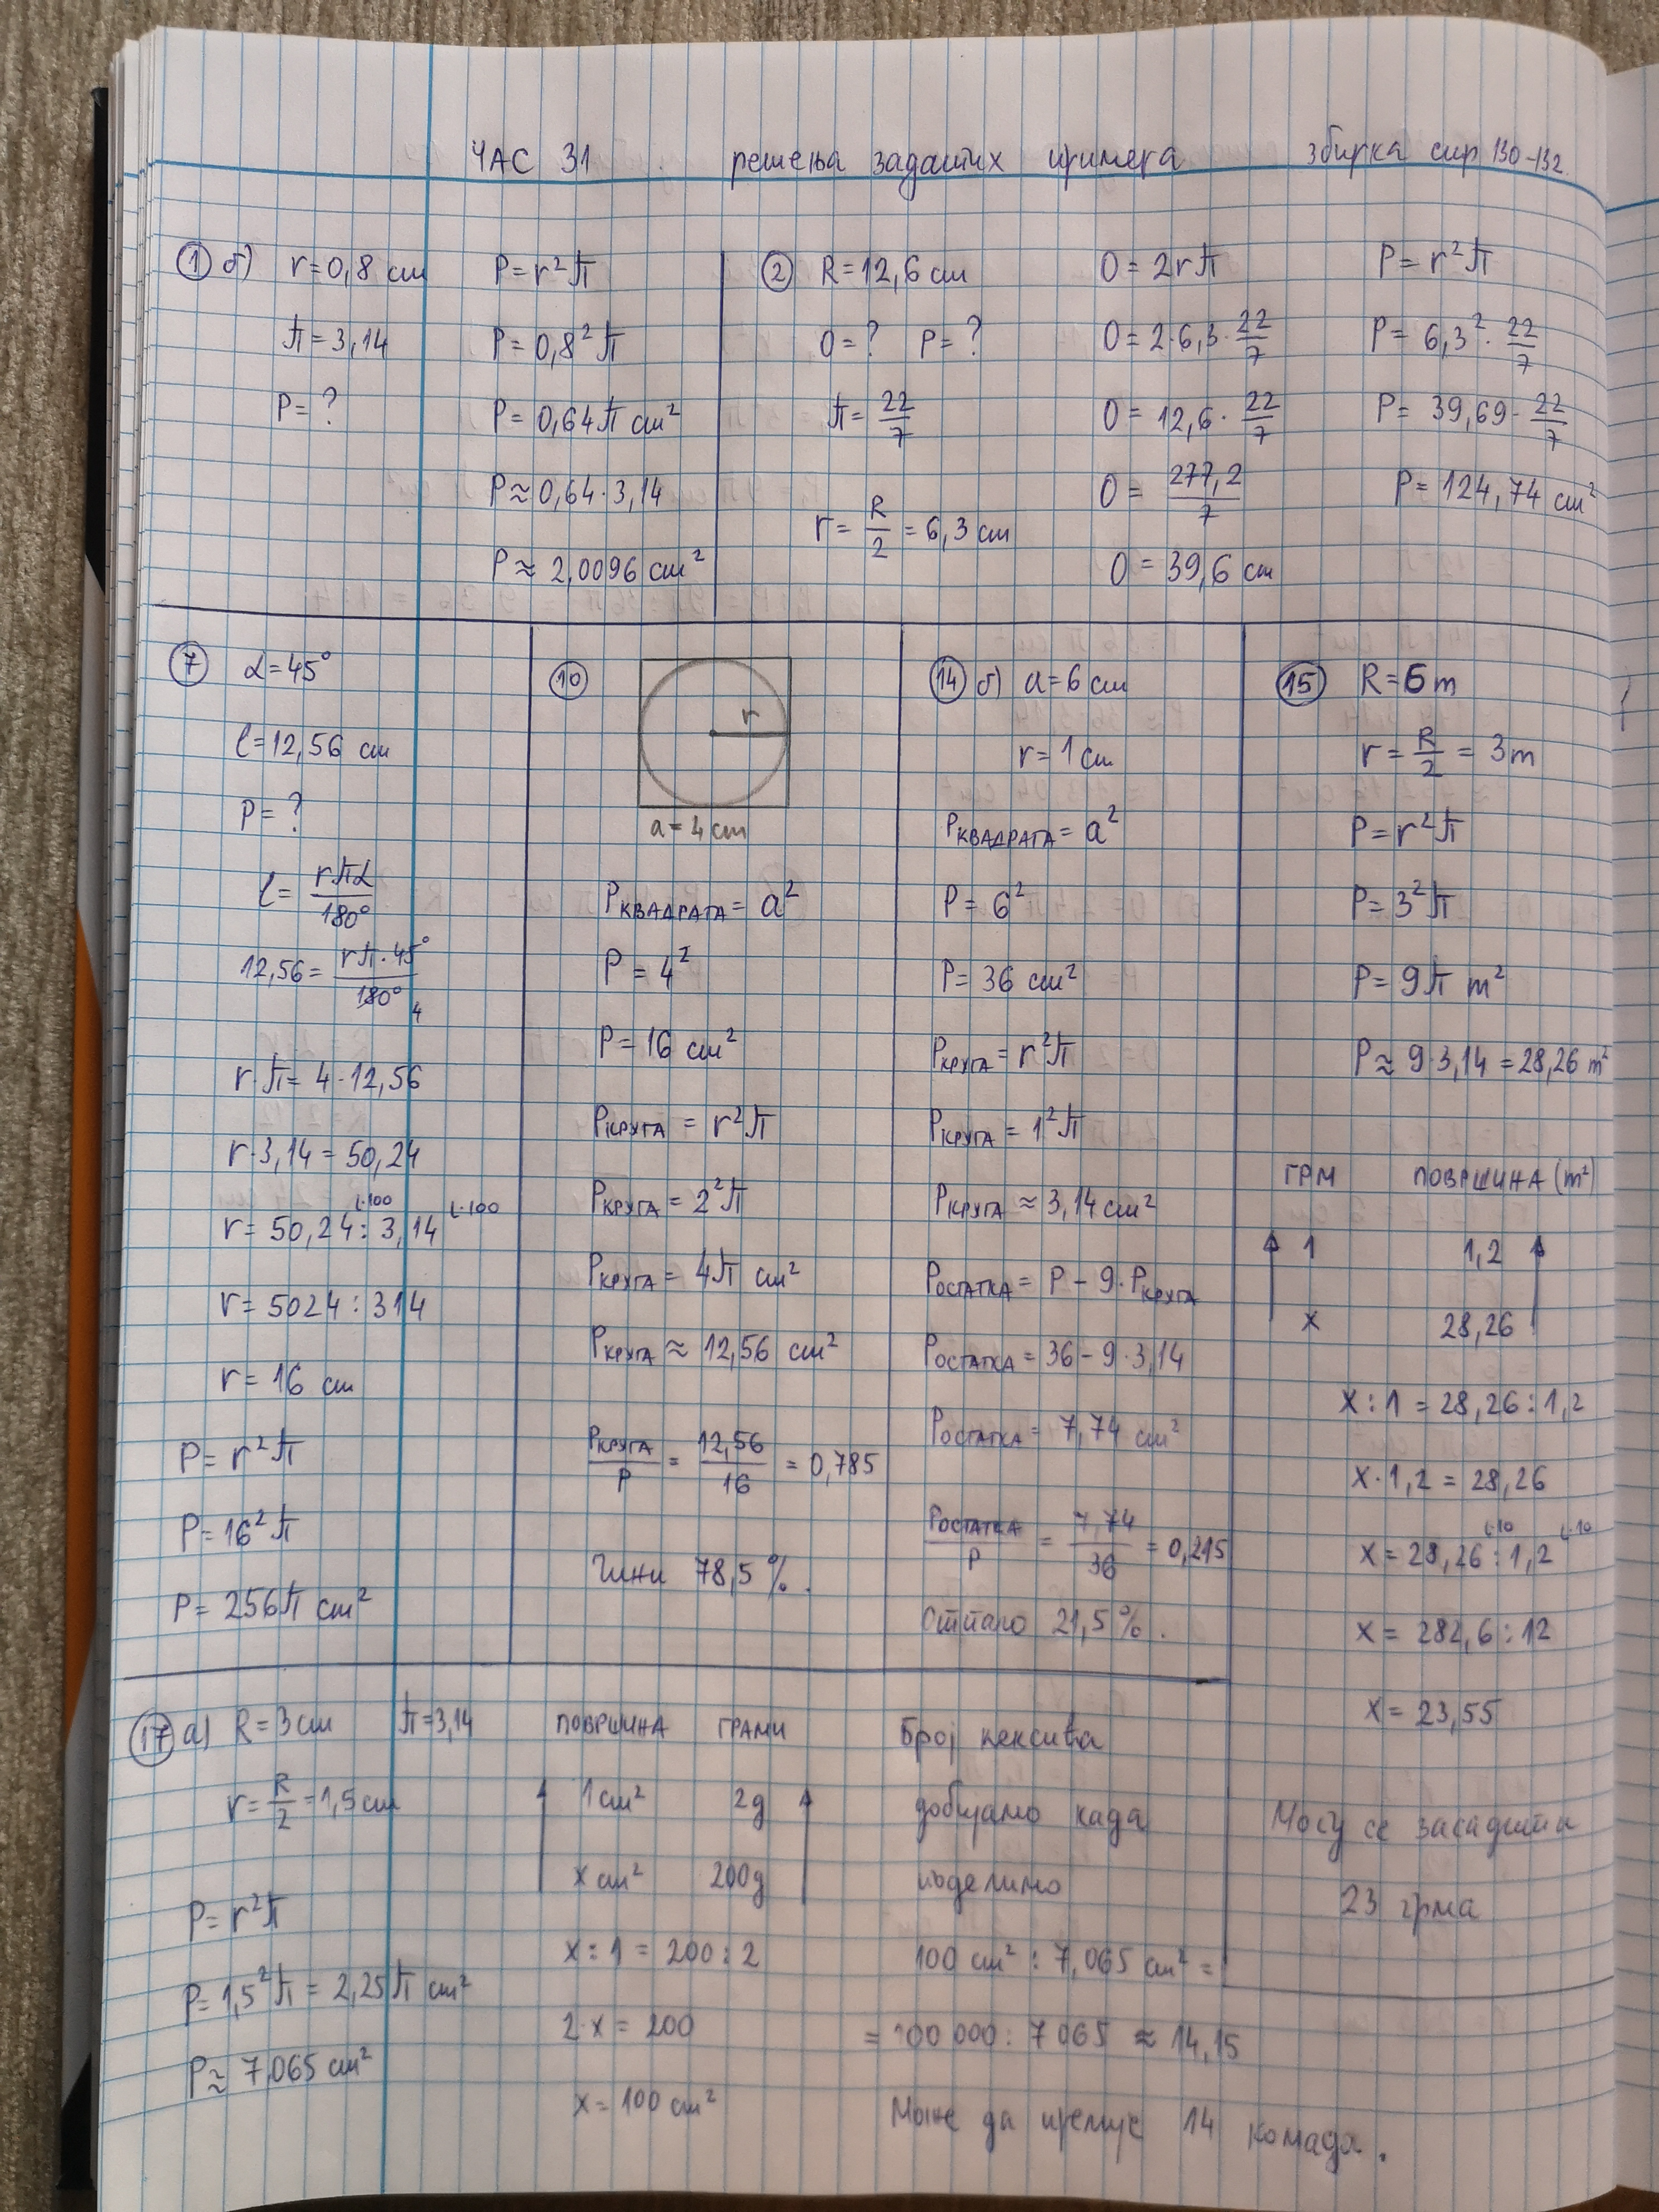 ЧАС 31 решења задатих примера збирка стр 130-132.
① б) r=0,8 cm
π=3,14
P=?
P=r²π
P=0,8²π
P=0,64π cm²
P≈0,64·3,14
P≈2,0096 cm²
② R=12,6 cm
O=? P=?
π=22/7
r=R/2=6,3 cm
O=2rπ
O=2·6,3·22/7
O=12,6·22/7
O=277,2/7
O=39,6 cm
P=r²π
P=6,3²·22/7
P=39,69·22/7
P=124,74 cm²
⑦ α=45°
l=12,56 cm
P=?
l=rπα/180°
12,56=rπ·45°/180° 4
r·π=4·12,56
r·3,14=50,24
r=50,24:3,14 (·100 (·100
r=5024:314
r=16 cm
P=r²π
P=16²π
P=256π cm²
⑩
r
a=4 cm
PКВАДРАТА=a²
P=4²
P=16 cm²
PКРУГА=r²π
PКРУГА=2²π
PКРУГА=4π cm²
PКРУГА≈12,56 cm²
PКРУГА/P=12,56/16=0,785
Чини 78,5%.
⑭ б) a=6 cm
r=1 cm
PКВАДРАТА=a²
P=6²
P=36 cm²
PКРУГА=r²π
PКРУГА=1²π
PКРУГА≈3,14 cm²
PОСТАТКА=P-9·PКРУГА
PОСТАТКА=36-9·3,14
PОСТАТКА=7,74 cm²
PОСТАТКА/P=7,74/36=0,215
Отпало 21,5%.
⑮ R=6 m
r=R/2=3m
P=r²π
P=3²π
P=9π m²
P≈9·3,14=28,26 m²
ГРМ ПОВРШИНА (m²)
1 1,2
x 28,26
x:1=28,26:1,2
x·1,2=28,26
x=28,26:1,2 (·10 (·10
x=282,6:12
x=23,55
Могу се засадити
23 грма
⑰ а) R=3cm π=3,14
r=R/2=1,5cm
P=r²π
P=1,5²π=2,25π cm²
P≈7,065 cm²
ПОВРШИНА ГРАМИ
1 cm² 2g
x cm² 200g
x:1=200:2
2·x=200
x=100 cm²
Број кексића
добијамо када
поделимо
100 cm²:7,065 cm²=
=100 000:7 065≈14,15
Може да премије 14 комада.